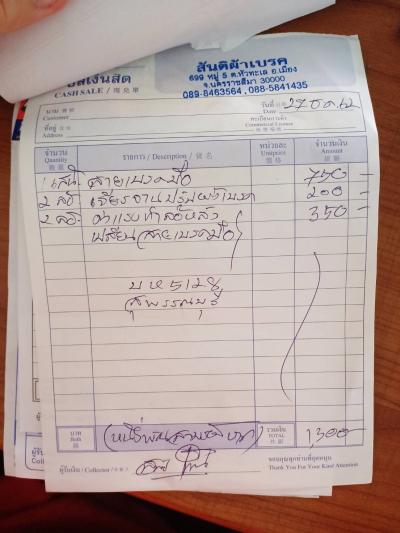 บิลเงินสด
CASH SALE / 現兌單
สันติผ้าเบรค
699 หมู่ 5 ต.หัวทะเล อ.เมือง
จ.นครราชสีมา 30000
089-8463564 , 088-5841731
นาม
Customer
วันที่
Date
27 ธ.ค. 62
ที่อยู่
Address
ทะเบียนการค้า
Commercial License
จำนวน
Quantity
รายการ / Description / 貨名
หน่วยละ
Unitprice
จำนวนเงิน
Amount
1 เส้น สายเบรคมือ 750 -
2 ล้อ เจียรจาน 200 -
2 ล้อ ค่าแรงทำล้อหลัง 350 -
เปลี่ยนสายเบรคมือ
บห 5128
สุพรรณบุรี
บาท
Baht
(หนึ่งพันสามร้อยบาท)
รวมเงิน
TOTAL
1,300 -
ผู้รับเงิน / Collector
ขอบคุณทุกท่านที่อุดหนุน
Thank You For Your Kind Attention